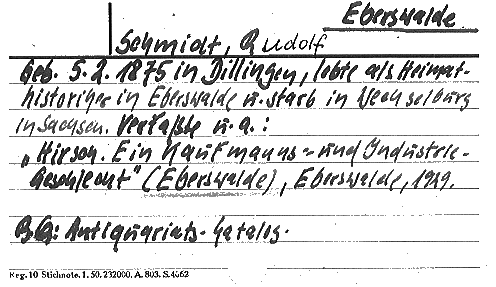 Eberswalde
Schmidt, Rudolf
Geb. 5.2. 1875 in Dillingen, lebte als Heimat-
historiker in Eberswalde u. starb in Wechselburg
in Sachsen. Verfaßte u.a.:
„Hirsch. Ein Kaufmanns- und Industrie-
Geschlecht" (Eberswalde), Eberswalde, 1929.
BQ: Antiquariats-Katalog.
Reg. 10 Stichnote. 1. 50. 232000. A. 803. S. 4662